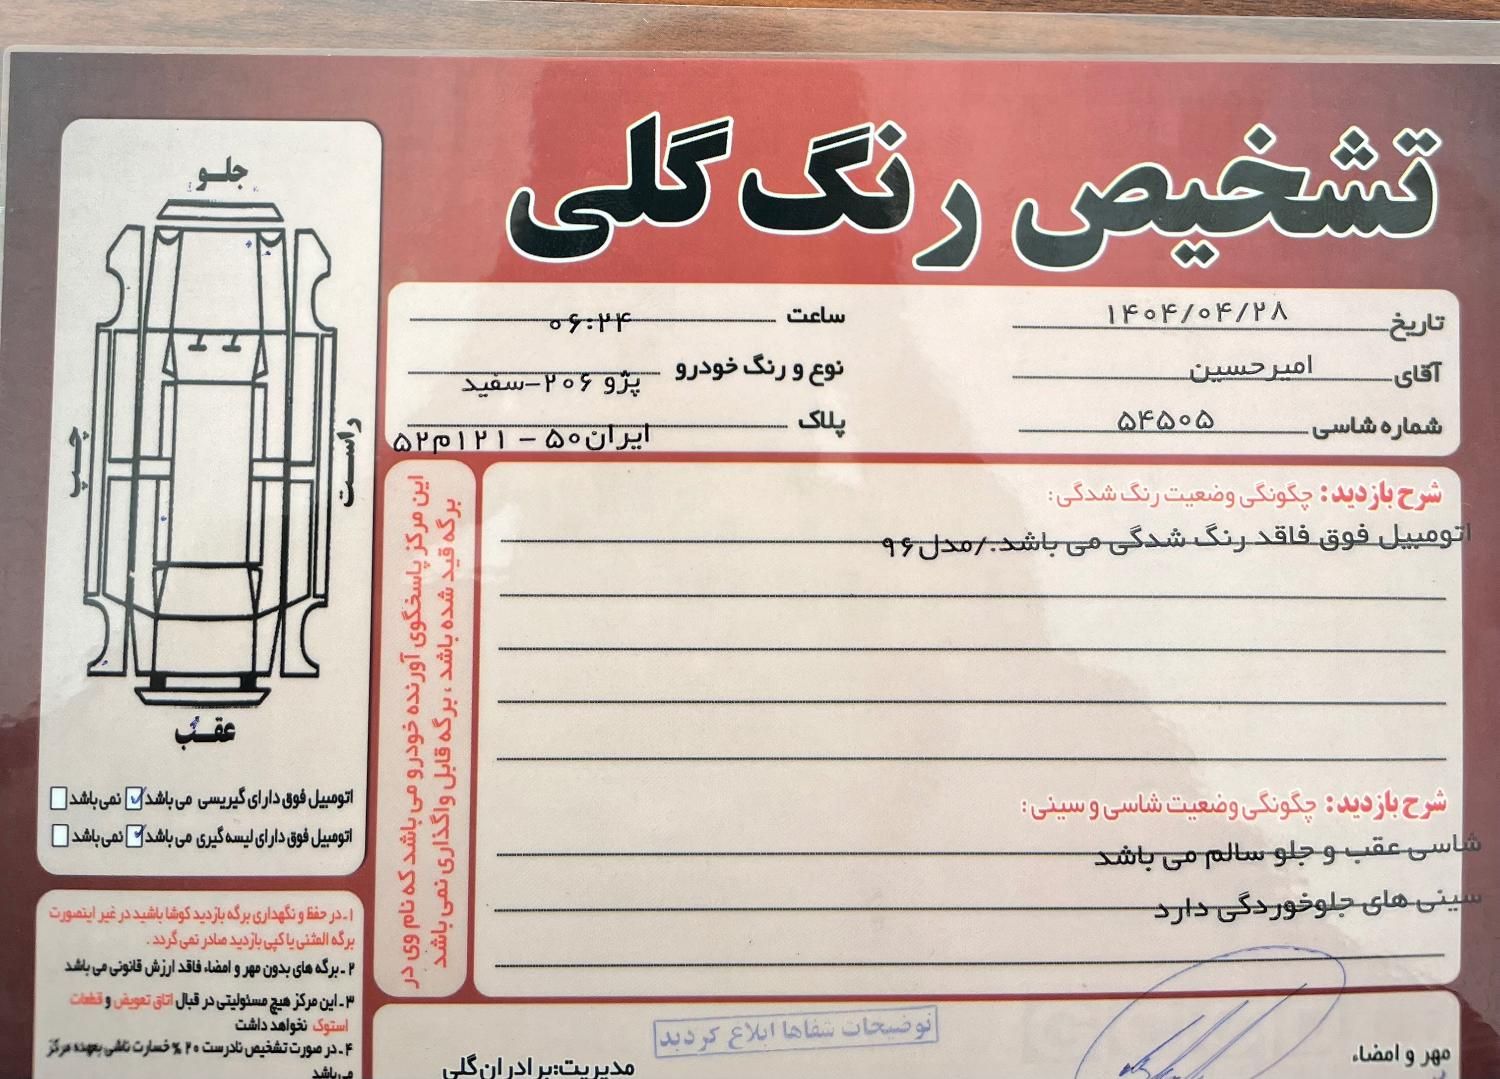 تشخیص رنگ گلی
تاریخ ۱۴۰۴/۰۴/۲۸
ساعت ۰۶:۲۴
آقای امیرحسین
نوع و رنگ خودرو پژو ۲۰۶-سفید
شماره شاسی ۵۴۵۰۵
پلاک ایران۵۰ - ۱۲۱م۵۲
شرح بازدید: چگونگی وضعیت رنگ شدگی:
اتومبیل فوق فاقد رنگ شدگی می باشد./مدل۹۶
شرح بازدید: چگونگی وضعیت شاسی و سینی:
شاسی عقب و جلو سالم می باشد
سینی های جلوخوردگی دارد
مهر و امضاء
توضیحات شفاها ابلاغ گردید
مدیریت:برادران گلی
این مرکز پاسخگوی آورنده خودرو می باشد که نام وی در
برگه قید شده باشد ، برگه قابل واگذاری نمی باشد
جلو
راست
چپ
عقب
اتومبیل فوق دارای گیریسی می باشد نمی باشد
اتومبیل فوق دارای لیسه گیری می باشد نمی باشد
۱ـ در حفظ و نگهداری برگه بازدید کوشا باشید در غیر اینصورت
برگه المثنی یا کپی بازدید صادر نمی گردد .
۲ـ برگه های بدون مهر و امضاء فاقد ارزش قانونی می باشد
۳ـ این مرکز هیچ مسئولیتی در قبال اتاق تعویض و قطعات
استوک نخواهد داشت
۴ـ در صورت تشخیص نادرست ۲۰٪ خسارت ناشی بعهده مرکز
می باشد